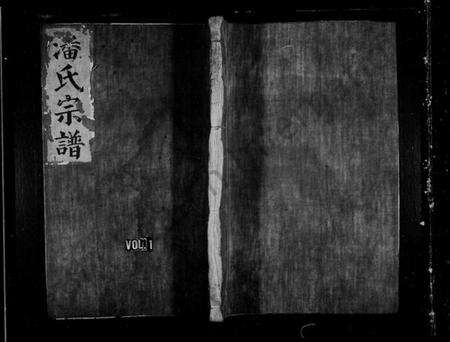 潘氏宗譜
VOL.1